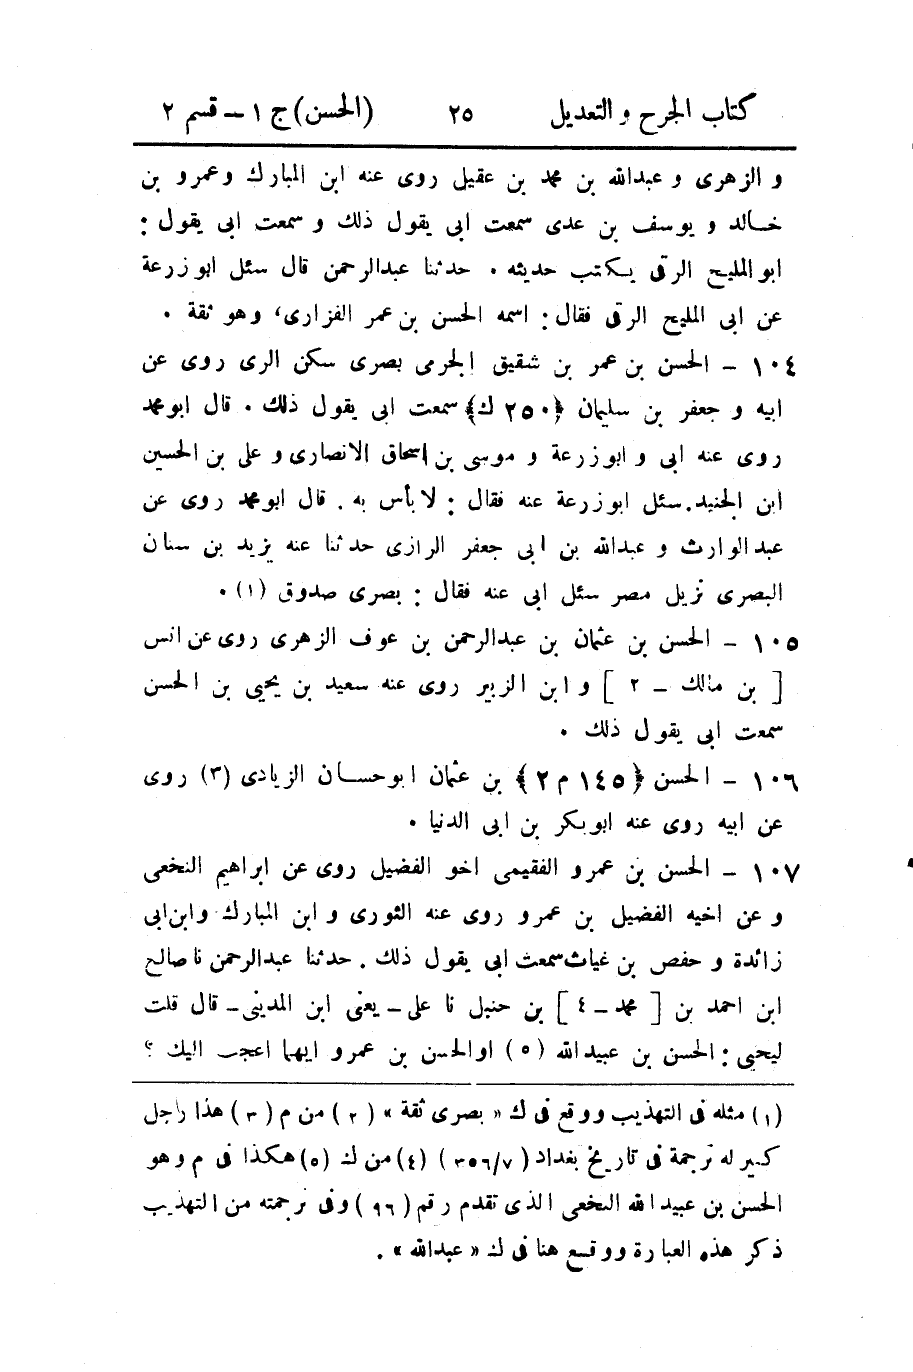 كتاب الجرح والتعديل ٢٥ (الحسن) ج ١ ــ قسم ٢
و الزهرى و عبدالله بن محمد بن عقيل روى عنه ابن المبارك وعمرو بن
خالد و يوسف بن عدى سمعت ابى يقول ذلك و سمعت ابى يقول :
ابو المليح الرقى يكتب حديثه . حدثنا عبدالرحمن قال سئل ابو زرعة
عن ابى المليح الرقى فقال : اسمه الحسن بن عمر الفزارى، وهو ثقة .
١٠٤ ــ الحسن بن عمر بن شقيق الجرمى بصرى سكن الرى روى عن
ابيه و جعفر بن سليمان ﴿٢٥٠ ك﴾ سمعت ابى يقول ذلك . قال ابو محمد
روى عنه ابى و ابو زرعة و موسى بن اسحاق الانصارى و على بن الحسين
ابن الجنيد. سئل ابو زرعة عنه فقال : لا بأس به . قال ابو محمد روى عن
عبد الوارث و عبدالله بن ابى جعفر الرازى حدثنا عنه يزيد بن سنان
البصرى نزيل مصر سئل ابى عنه فقال : بصرى صدوق (١) .
١٠٥ ــ الحسن بن عثمان بن عبدالرحمن بن عوف الزهرى روى عن انس
[ بن مالك ــ ٢ ] و ابن الزبير روى عنه سعيد بن يحيى بن الحسن
سمعت ابى يقول ذلك .
١٠٦ ــ الحسن ﴿١٤٥ م ٢﴾ بن عثمان ابو حسان الزيادى (٣) روى
عن ابيه روى عنه ابو بكر بن ابى الدنيا .
١٠٧ ــ الحسن بن عمرو الفقيمى اخو الفضيل روى عن ابراهيم النخعى
و عن اخيه الفضيل بن عمرو روى عنه الثورى و ابن المبارك وابن ابى
زائدة و حفص بن غياث سمعت ابى يقول ذلك . حدثنا عبدالرحمن نا صالح
ابن احمد بن [ محمد ــ ٤ ] بن حنبل نا على ــ يعنى ابن المدينى ــ قال قلت
ليحيى : الحسن بن عبيدالله (٥) او الحسن بن عمرو ايهما اعجب اليك ؟
(١) مثله فى التهذيب ووقع فى ك « بصرى ثقة » (٢) من م (٣) هذا راجل
كبير له ترجمة فى تاريخ بغداد (٣٥٦/٧) (٤) من ك (٥) هكذا فى م وهو
الحسن بن عبيد الله النخعى الذى تقدم رقم (٩٦) وفى ترجمته من التهذيب
ذكر هذه العبارة ووقع هنا فى ك « عبدالله » .